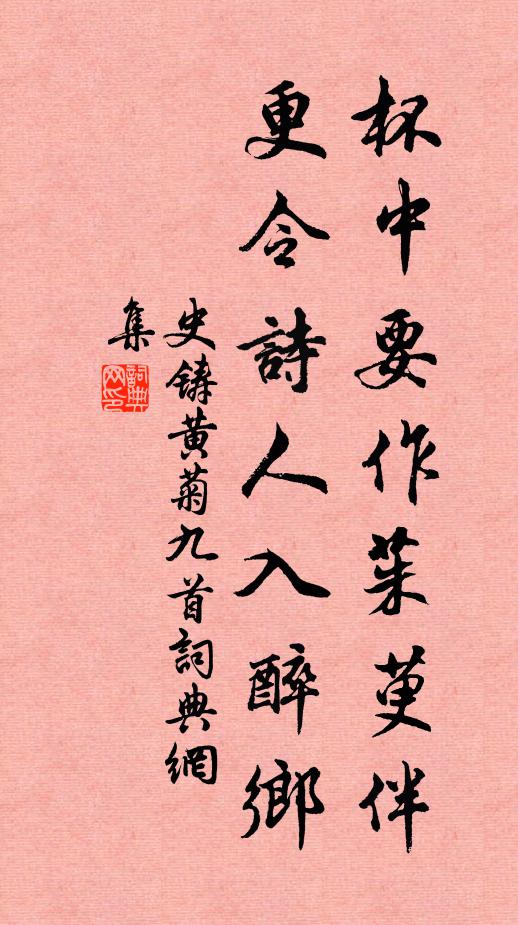 杯中要作茱萸伴
更令詩人入醉鄉
史鑄黃菊九首詞典網
集
詞典
网印